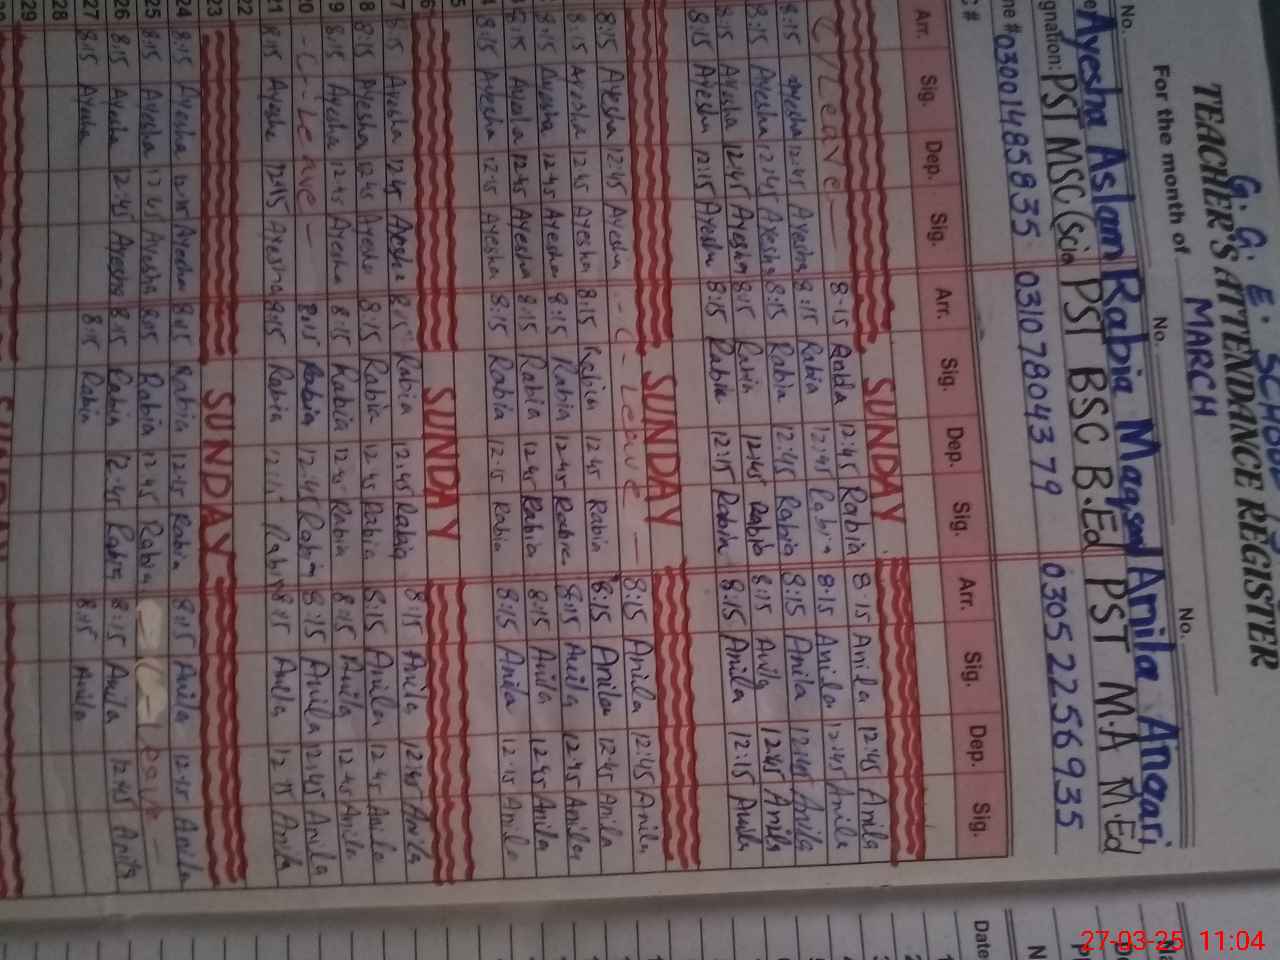 G. G. E. SCHOOL
TEACHER'S ATTENDANCE REGISTER
For the month of MARCH
No. No. No.
Ayesha Aslam Rabia Maqsood Anila Ansari
gnation: PST MSC (Scia PST BSC B.Ed PST M.A M.Ed
ne # 03001485835 03107804379 03052256935
C #
Arr. Sig. Dep. Sig. Arr. Sig. Dep. Sig. Arr. Sig. Dep. Sig.
SUNDAY
C/Leave 8:15 12:45 Rabia 8:15 Anila 12:45 Anila
8:15 Ayesha 12:45 Ayesha 8:15 Rabia 12:45 Rabia 8:15 Anila 12:45 Anila
8:15 Ayesha 12:45 Ayesha 8:15 Rabia 12:45 Rabia 8:15 Anila 12:45 Anila
8:15 Ayesha 12:45 Ayesha 8:15 Rabia 12:45 Rabia 8:15 Anila 12:45 Anila
8:15 Ayesha 12:15 Ayesha 8:15 Rabia 12:15 Rabia 8:15 Anila 12:15 Anila
SUNDAY
8:15 Ayesha 12:45 Ayesha - C - Leave - 8:15 Anila 12:45 Anila
8:15 Ayesha 12:45 Ayesha 8:15 Rabia 12:45 Rabia 8:15 Anila 12:45 Anila
8:15 Ayesha 12:45 Ayesha 8:15 Rabia 12:45 Rabia 8:15 Anila 12:45 Anila
8:15 Ayesha 12:45 Ayesha 8:15 Rabia 12:45 Rabia 8:15 Anila 12:45 Anila
8:15 Ayesha 12:15 Ayesha 8:15 Rabia 12:15 Rabia 8:15 Anila 12:15 Anila
5
6 SUNDAY
7 8:15 Ayesha 12:45 Ayesha 8:15 Rabia 12:45 Rabia 8:15 Anila 12:45 Anila
8 8:15 Ayesha 12:45 Ayesha 8:15 Rabia 12:45 Rabia 8:15 Anila 12:45 Anila
9 8:15 Ayesha 12:45 Ayesha 8:15 Rabia 12:45 Rabia 8:15 Anila 12:45 Anila
20 - C - Leave - 8:15 Rabia 12:45 Rabia 8:15 Anila 12:45 Anila
21 8:15 Ayesha 12:15 Ayesha 8:15 Rabia 12:15 Rabia 8:15 Anila 12:15 Anila
22
23 SUNDAY
24 8:15 Ayesha 12:15 Ayesha 8:15 Rabia 12:15 Rabia 8:15 Anila 12:15 Anila
25 8:15 Ayesha 12:45 Ayesha 8:15 Rabia 12:45 Rabia Leave -
26 8:15 Ayesha 12:45 Ayesha 8:15 Rabia 12:45 Rabia 8:15 Anila 12:45 Anila
27 8:15 Ayesha 8:15 Rabia 8:15 Anila
28
29
Date
27-03-25 11:04